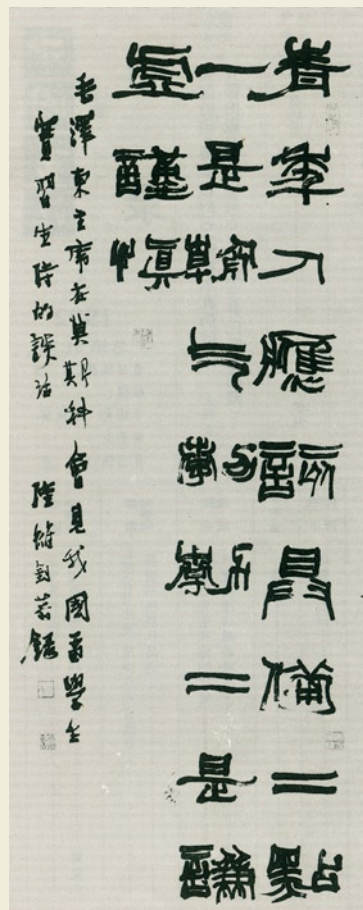 青年人應該具備二點
一是朝气勃勃二是謙
虛謹慎
毛澤東主席在莫斯科會見我國留學生
實習生時的談話 陸維釗敬錄